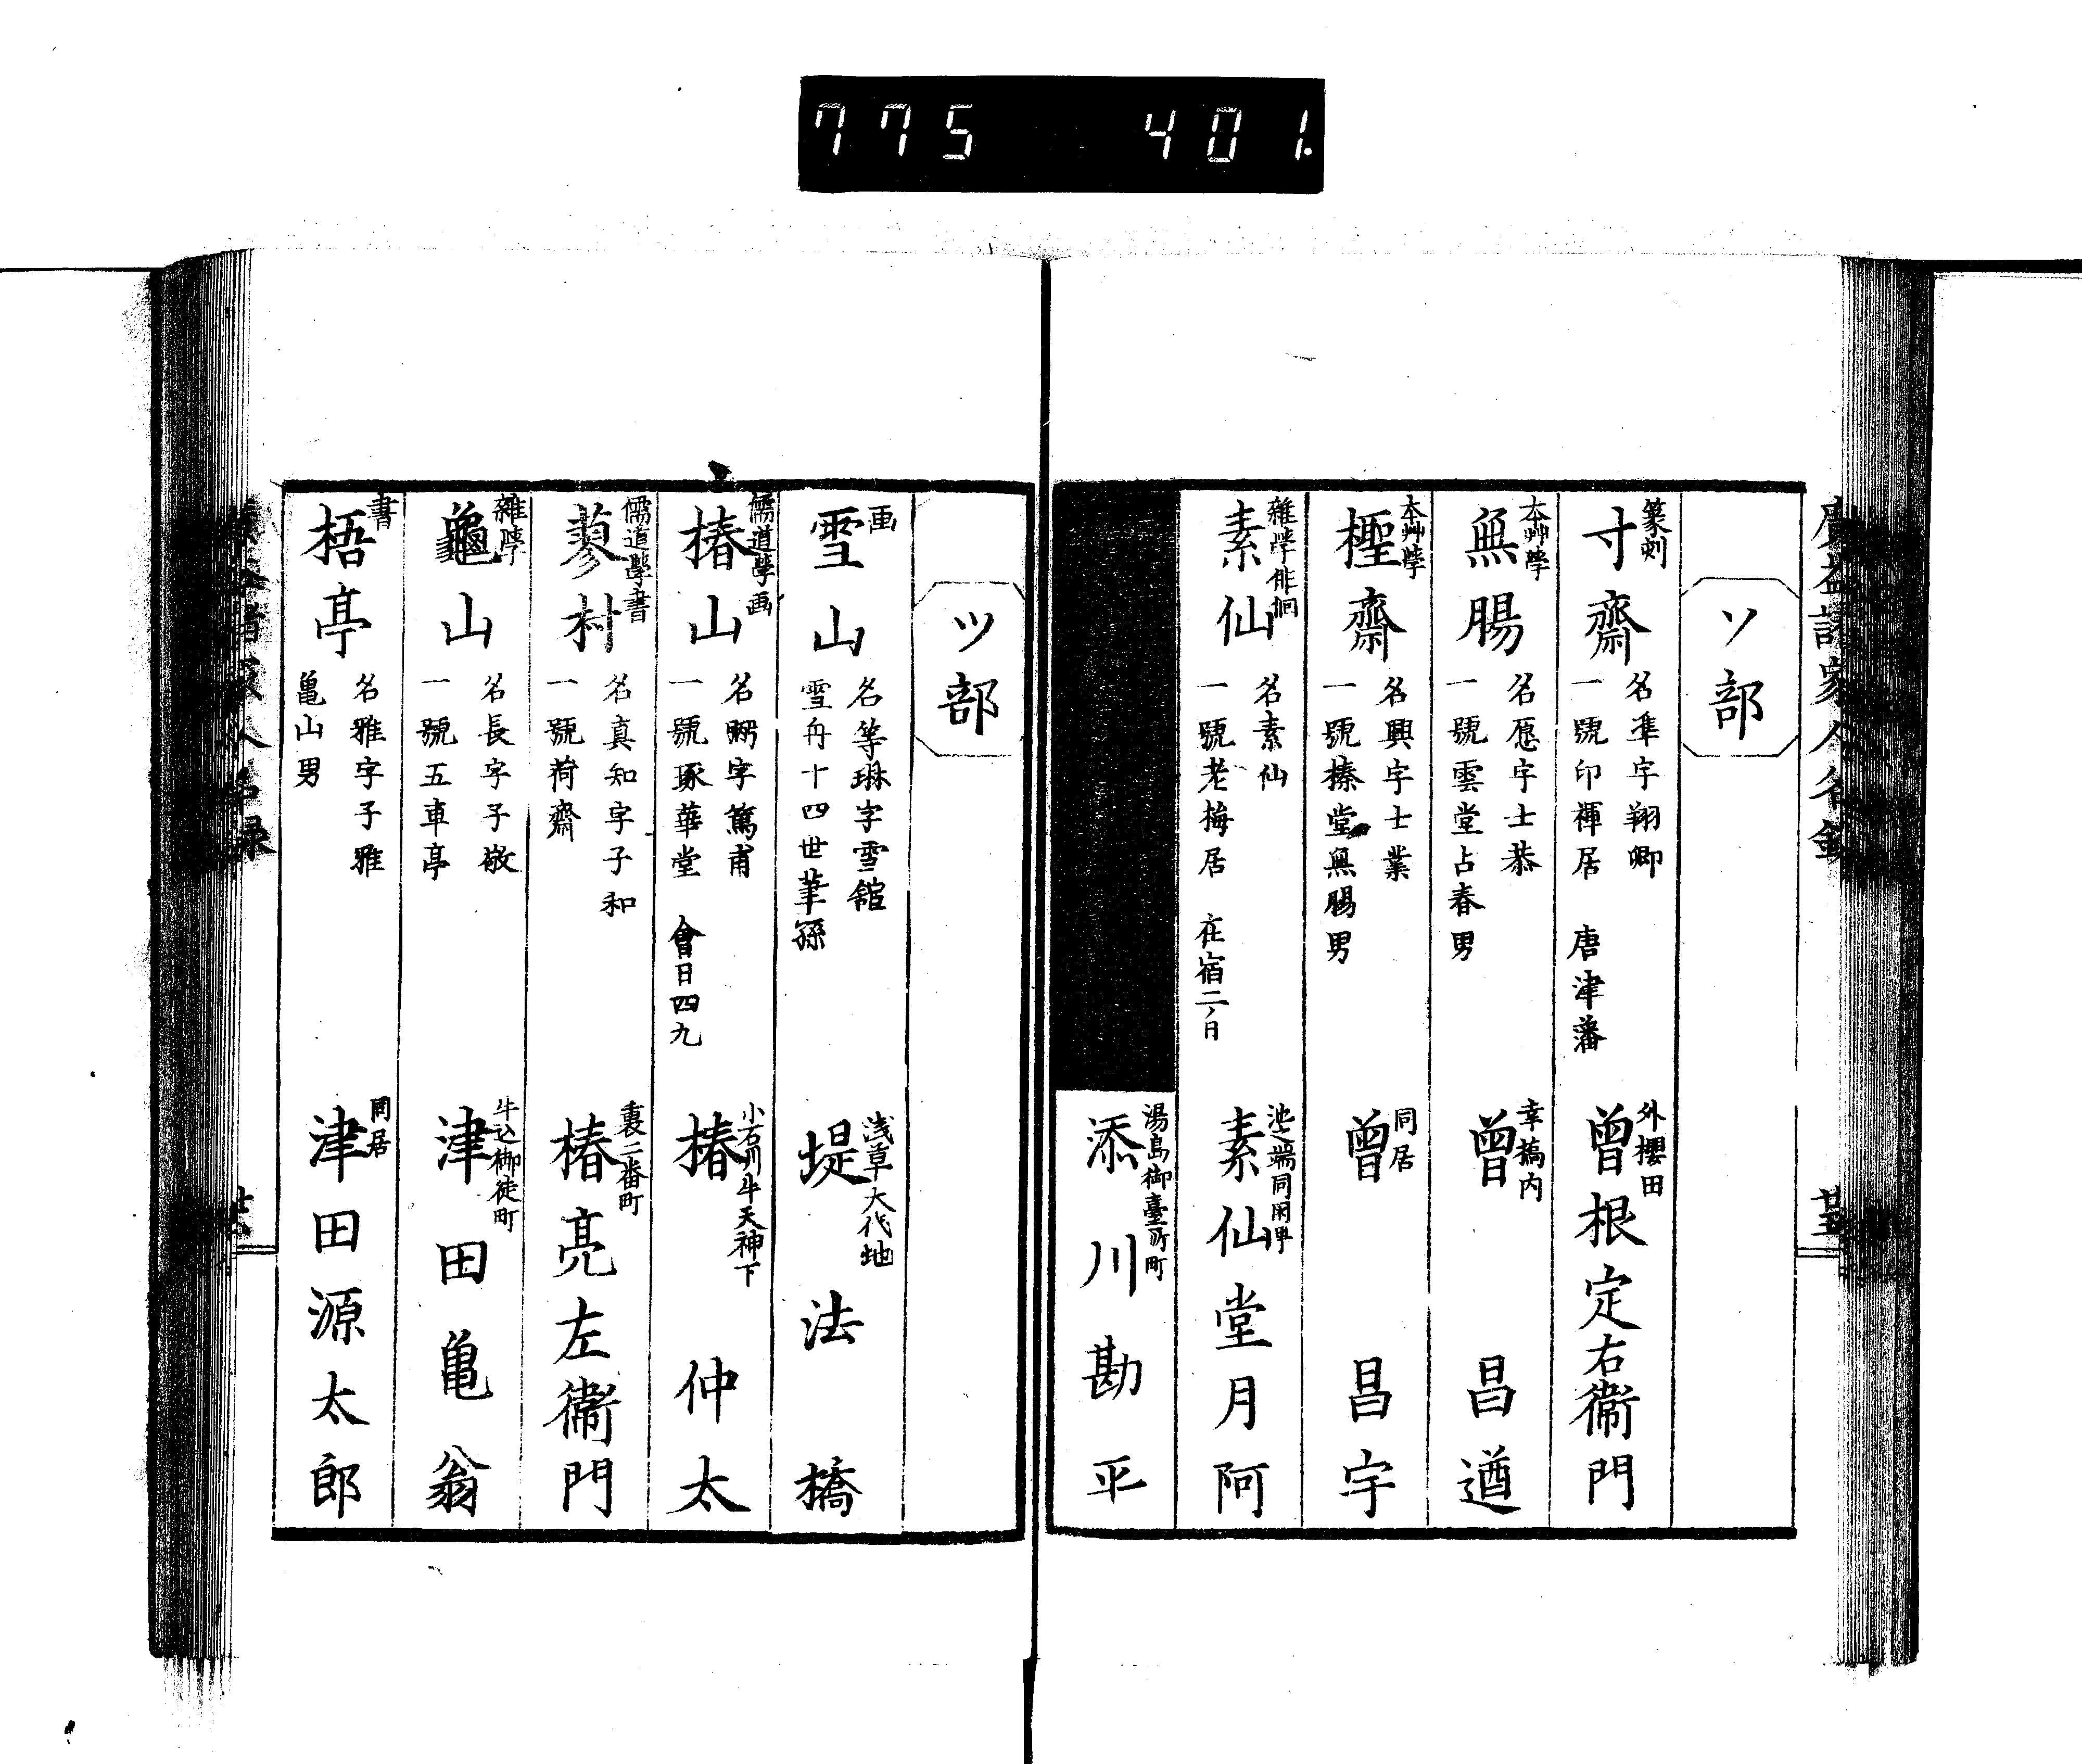 775 401.
廣益諸家人名録
ソ部
篆刻
寸齋
名準字翔卿
一號印禪居 唐津藩
外櫻田
曾根定右衞門
本艸學
無腸
名愿字士恭
一號雲堂占春男
幸橋内
曾昌遒
本艸學
檉齋
名興字士業
一號榛堂無腸男
同居
曾昌宇
雜學俳徊
素仙
名素仙
一號老梅居 在宿二ノ日
池之端同朋町
素仙堂月阿
湯島御臺所町
添川勘平
ツ部
画
雪山
名等琳字雪舘
雪舟十四世筆孫
浅草大代地
堤法橋
儒道學画
椿山
名弼字篤甫
一號琢華堂 會日四九
小石川牛天神下
椿仲太
儒道學書
蓼村
名真知字子和
一號荷齋
裏二番町
椿亮左衞門
雜學
龜山
名長字子敬
一號五車亭
牛込御徒町
津田亀翁
書
梧亭
名雅字子雅
亀山男
同居
津田源太郎